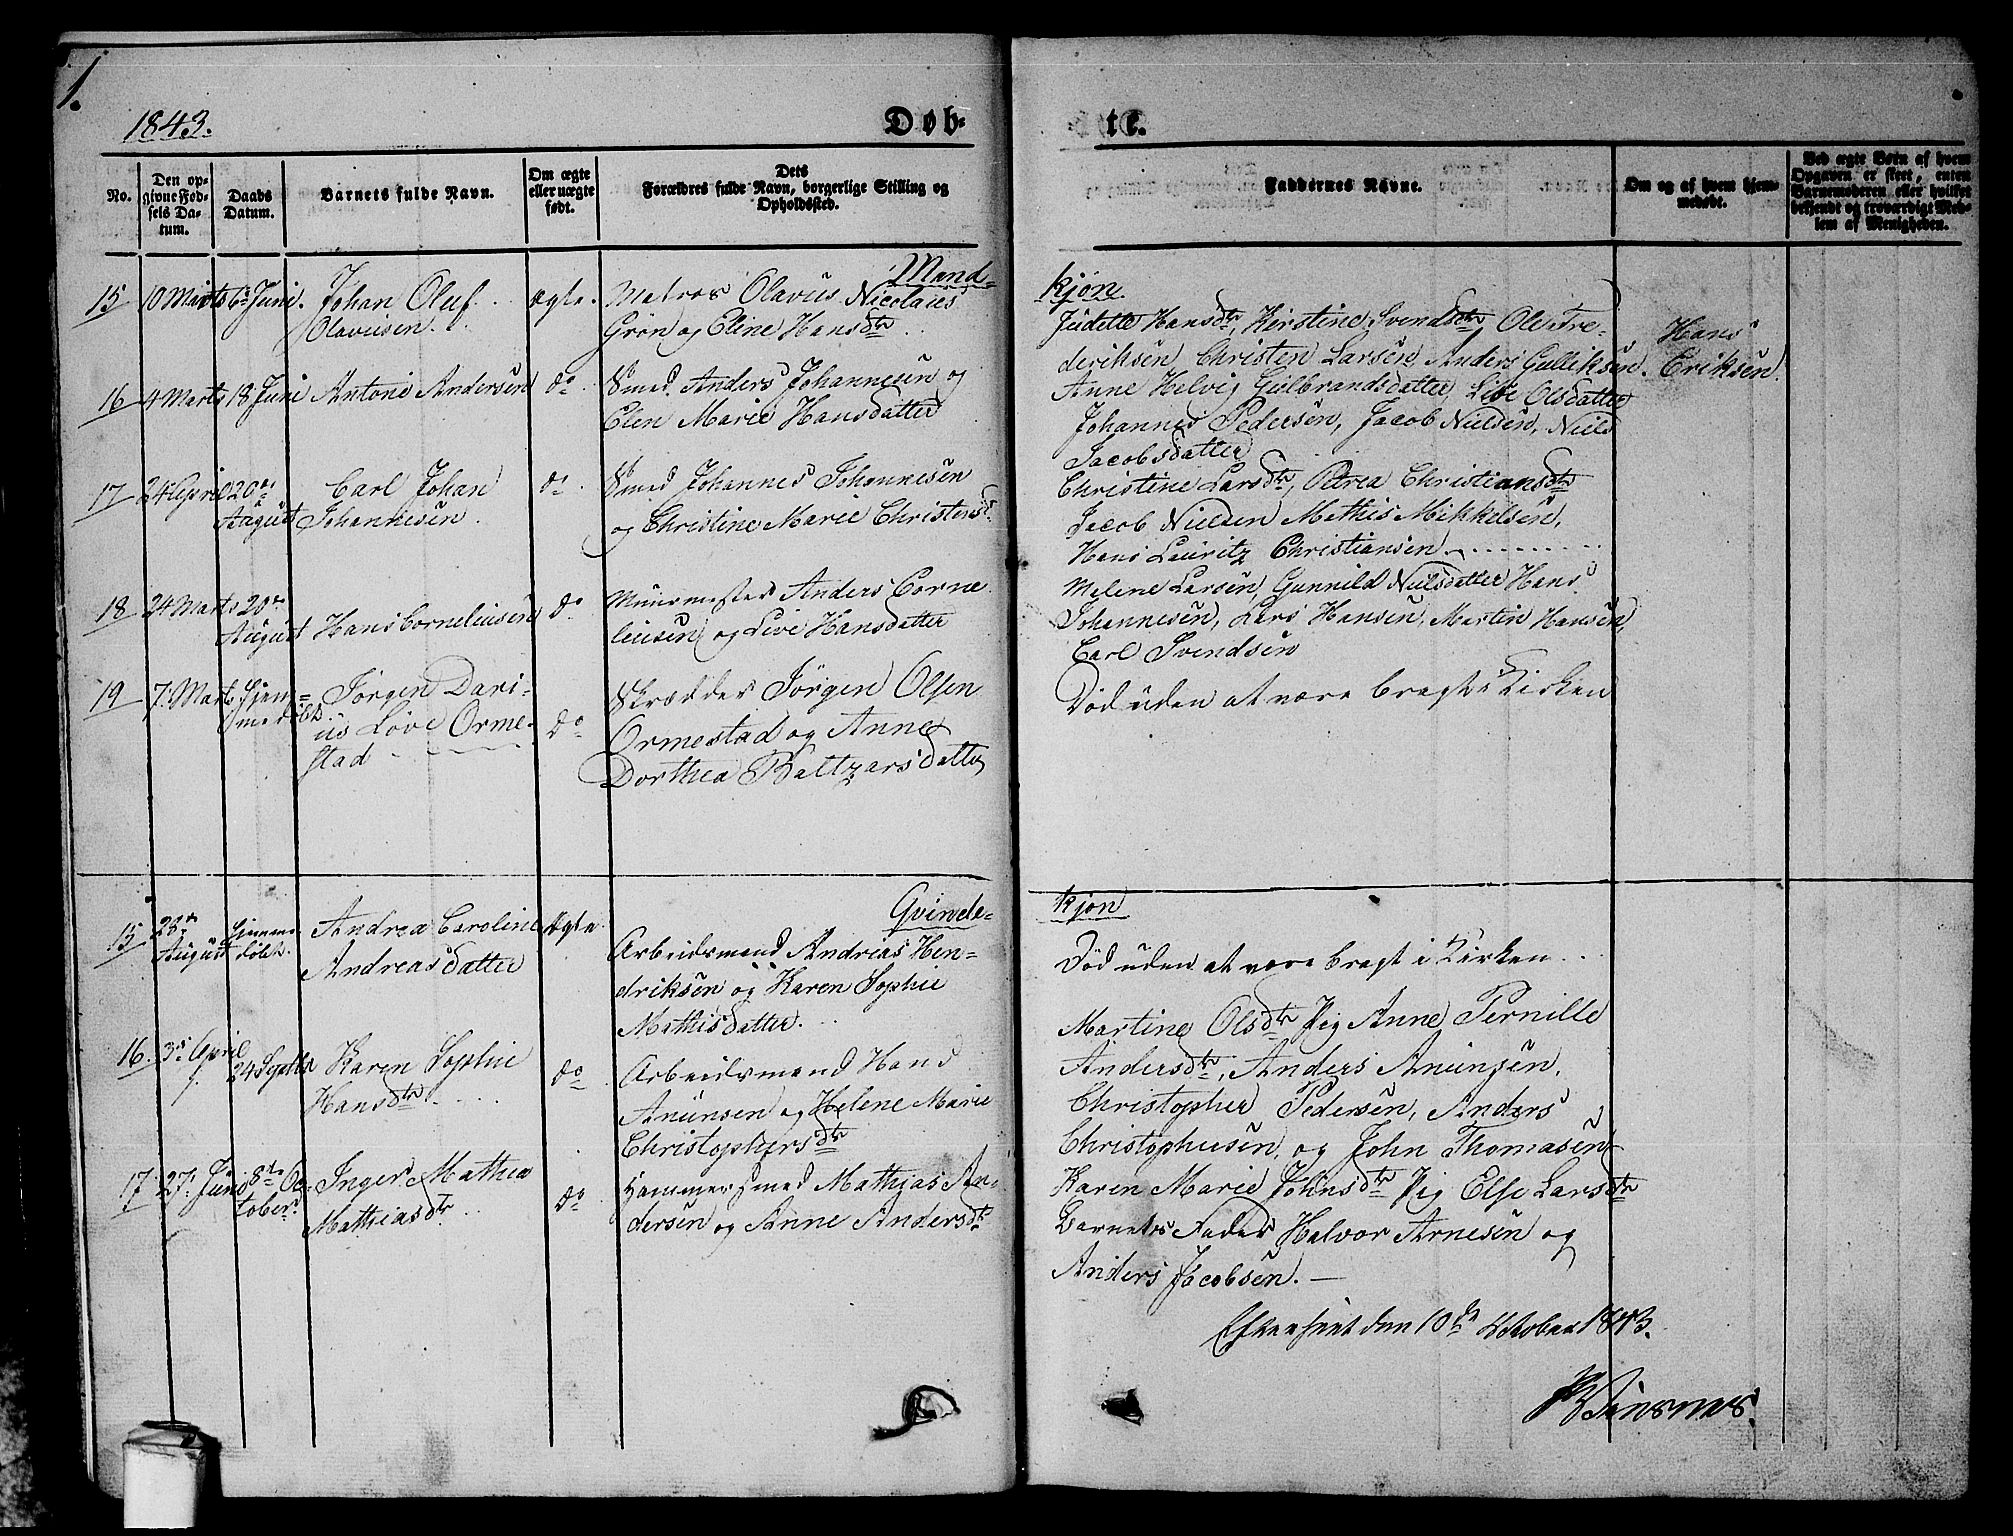 1.
1843.
Døb-
te.
No.
Den op-
givne Fød-
sels Da-
tum.
Daabs
Datum.
Barnets fulde Navn.
Om ægte
eller uægte
født.
Dets
Forældres fulde Navn, borgerlige Stilling og
Opholdssted.
Faddernes Navne.
Om og af hvem hjem-
medøbt.
Ved ægte Børn af hvem
Opgaven er skeet, enten
Barnemoderen eller hvilket
bekjendt og troværdigt Med-
lem af Menigheden.
Mand-
kjøn.
15 10 Marts 6te Juni. Johan Oluf
Olaviusen.
Ægte.
Matros Olavius Nicolaus
Grøn og Eline Hansdtr
Judette Hansdtr, Kirstine Svendsdtr, Ole Fre-
deriksen Christen Larsen, Anders Gulliksen.
Hans
Eriksen.
16 4 Marts 18 Juni Antoni Andersen do
Smed Anders Johannesen og
Elen Marie Hansdatter
Anne Helvig Gulbrandsdatter, Live Olsdatter
Johannes Pedersen, Jacob Nielsen, Niels
Jacobsdatter
17 24 April 20de
August
Carl Johan
Johannesen.
do.
Smed Johannes Johannesen
og Christine Marie Christensd.
Christine Larsdtr, Petrea Christiansdtr
Jacob Nielsen Mathis Mikkelsen,
Hans Lauritz Christiansen
18 24 Marts 20de
August
Hans Corneliusen do
Muurmester Anders Corne
liusen og Live Hansdatter
Melene Larsen, Gunnild Nielsdatter Hans
Johannesen, Lars Hansen, Martin Hansen,
Carl Svendsen
19 7 Marts Hjem-
medøbt.
Jørgen Dari-
us Love Orme-
stad
do
Skrædder Jørgen Olsen
Ormestad og Anne
Dorthea Baltzarsdatter
Død uden at være bragt i Kirken
Qvinde-
kjøn
15 28de
August
Hjemme-
døbt.
Andrea Caroline
Andreasdatter
Ægte.
Arbeidsmand Andrias Hen-
driksen og Karen Sophie
Mathisdatter.
Død uden at være bragt i Kirken
16. 3de April
24 Septbr
Karen Sophie
Hansdtr
do
Arbeidsmand Hans
Anunsen og Helene Marie
Christophersdtr
Martine Olsdtr Pig Anne Pernille
Andersdtr, Anders Anunsen,
Christopher Pedersen, Anders
Christophersen, og John Thomasen
17. 27. Juni 8de Oc-
tober.
Inger Mathea
Mathiasdtr.
do
Hammersmed Mathias An-
dersen og Anne Andersdtr
Karen Marie Johnsdtr Pig Else Larsdtr
Barnets Fader Halvor Arnesen og
Anders Jacobsen.
Efterseet den 10de October 1843.
Winsnes.